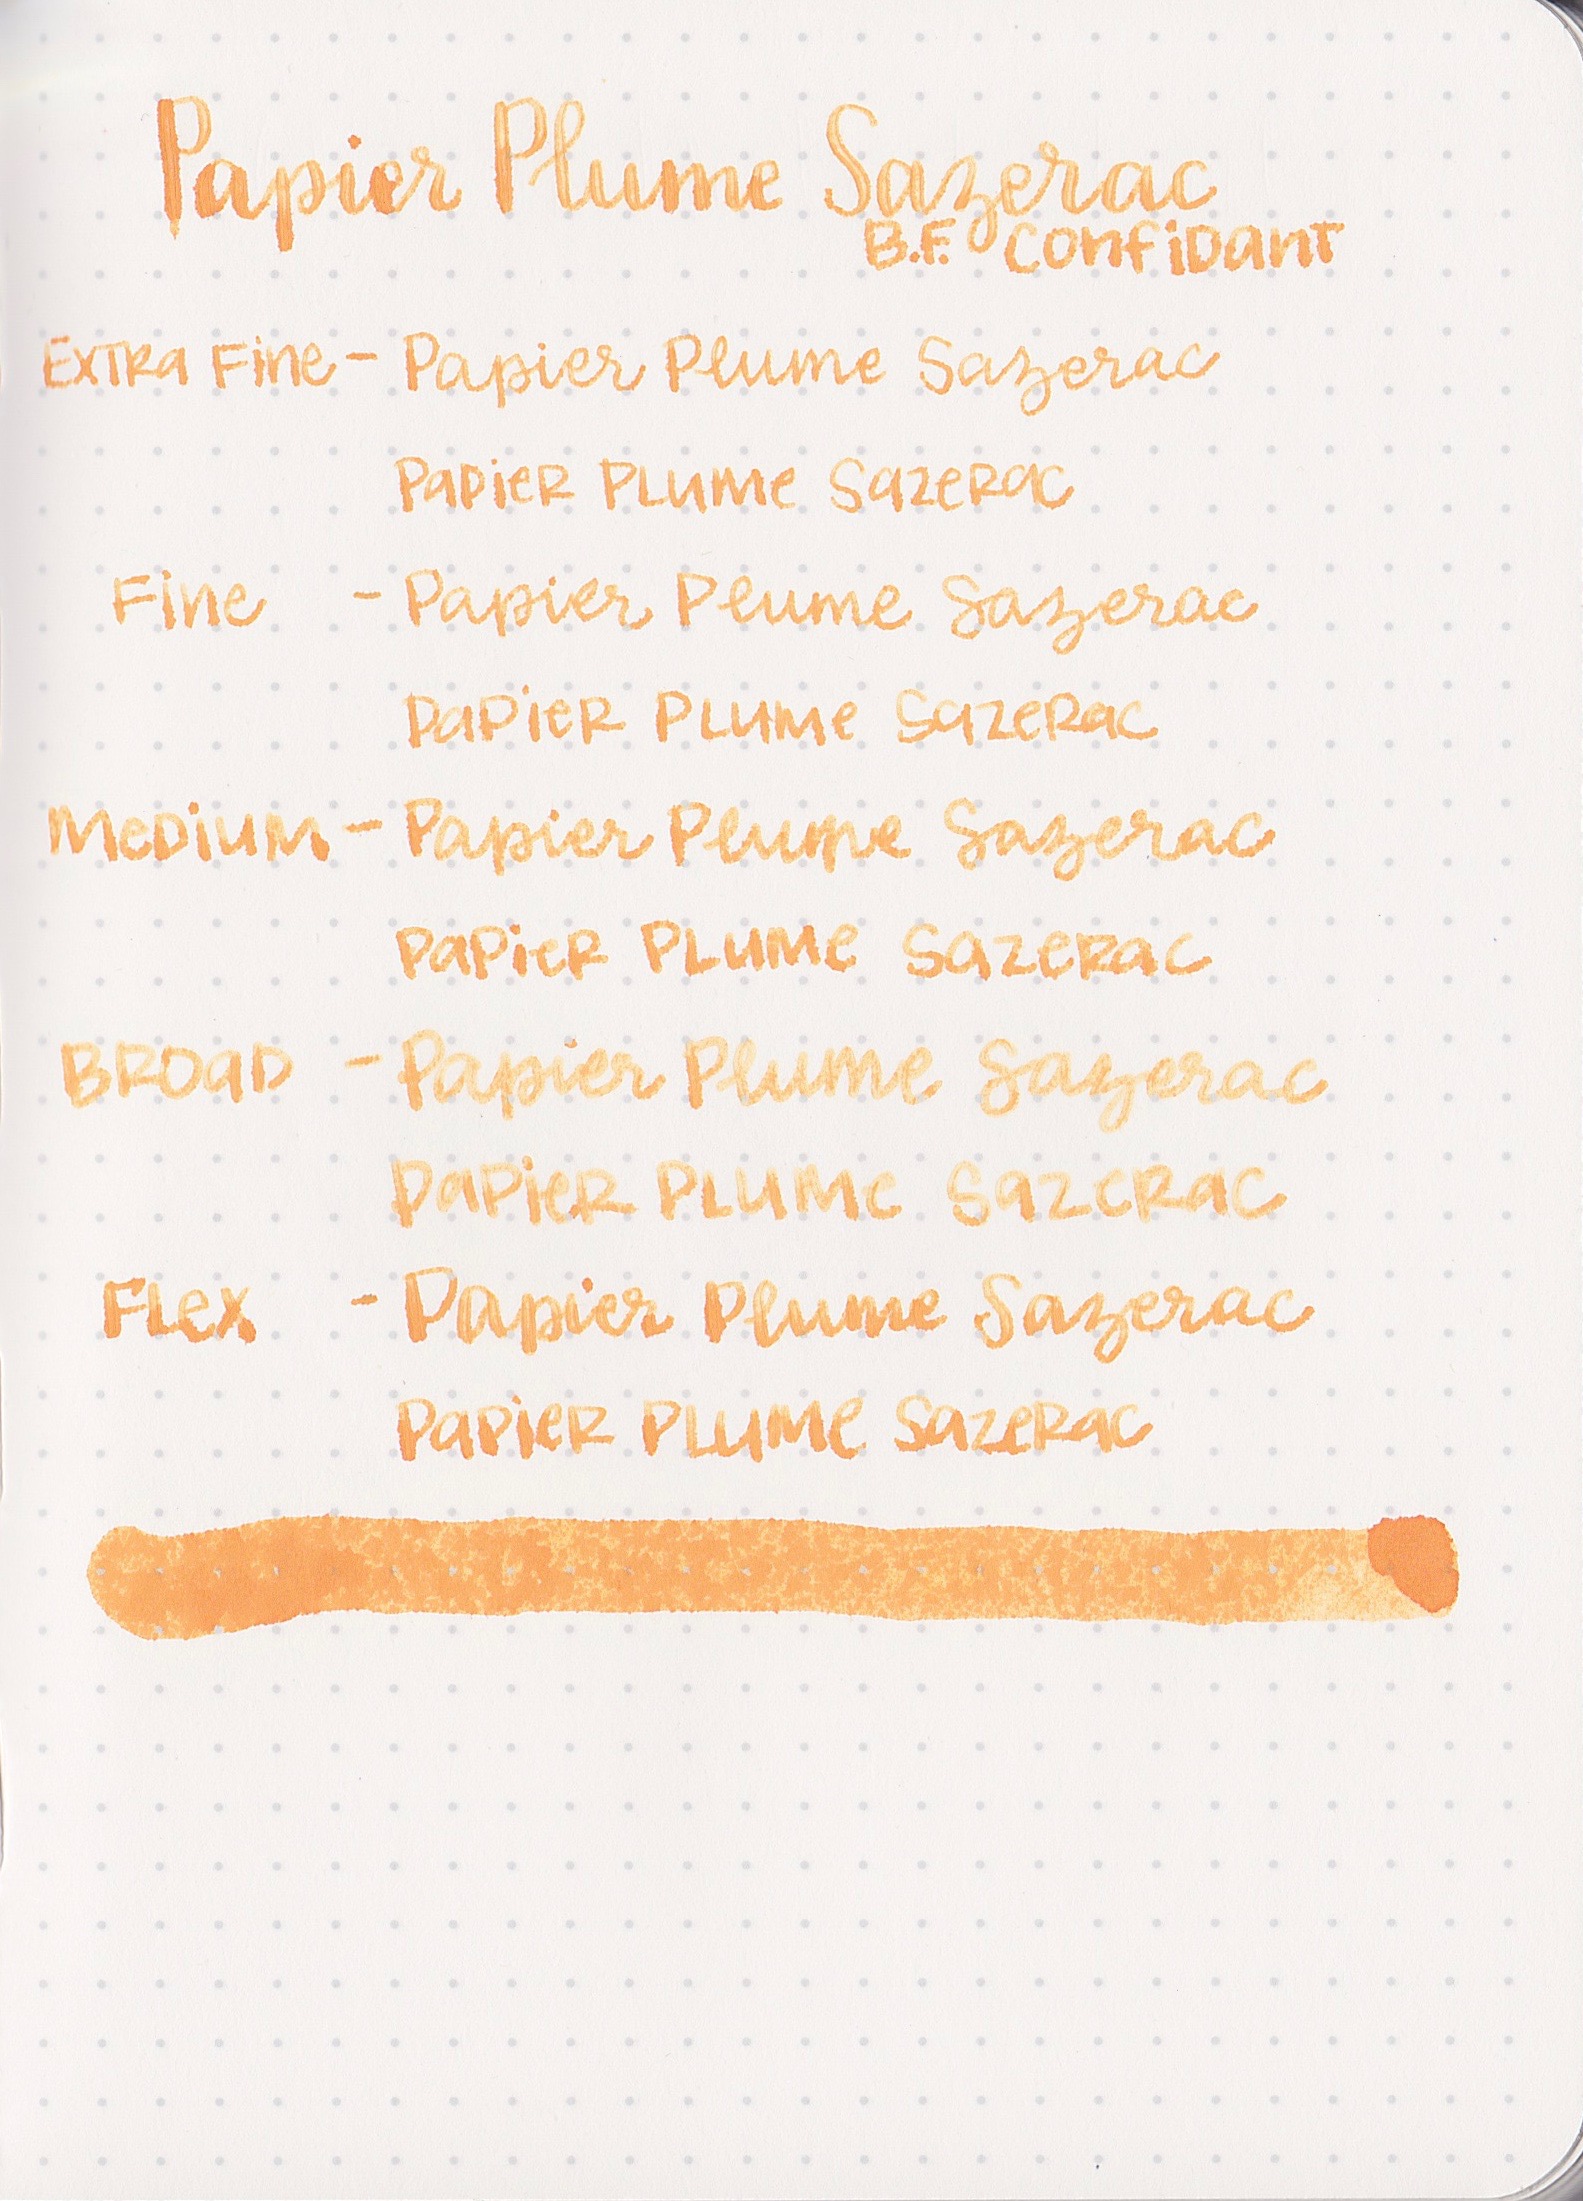 Papier Plume Sazerac
B.F. Confidant
Extra Fine - Papier Plume Sazerac
Papier Plume Sazerac
Fine - Papier Plume Sazerac
Papier Plume Sazerac
Medium - Papier Plume Sazerac
Papier Plume Sazerac
Broad - Papier Plume Sazerac
Papier Plume Sazerac
Flex - Papier Plume Sazerac
Papier Plume Sazerac